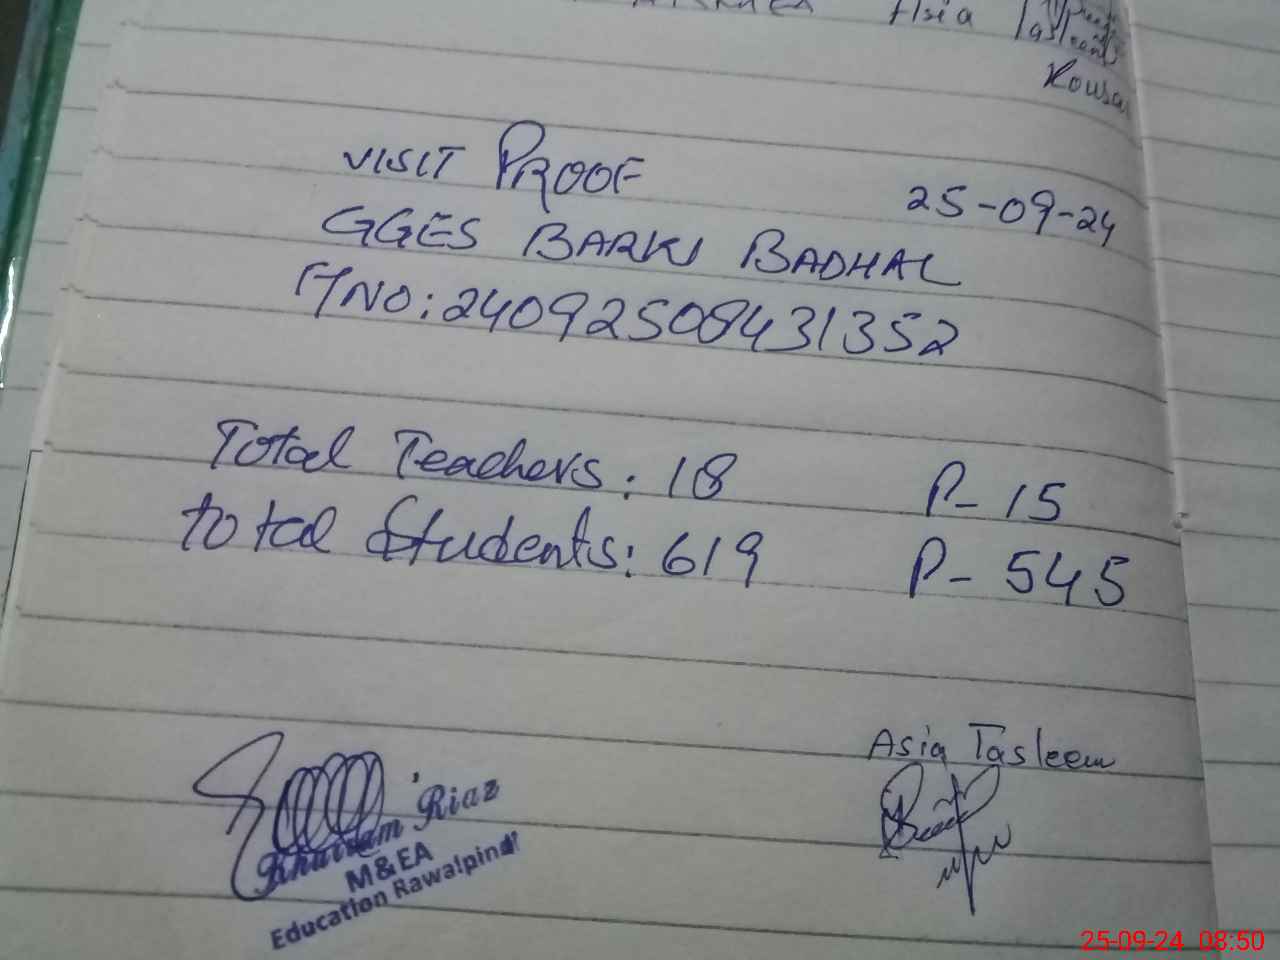 Asia
Kousa
VISIT PROOF 25-09-24
GGES BARKI BADHAL
F/NO: 24092508431352
Total Teachers: 18 P- 15
total Students: 619 P- 545
Asia Tasleem
Khurram Riaz
M&EA
Education Rawalpindi
25-09-24 08:50